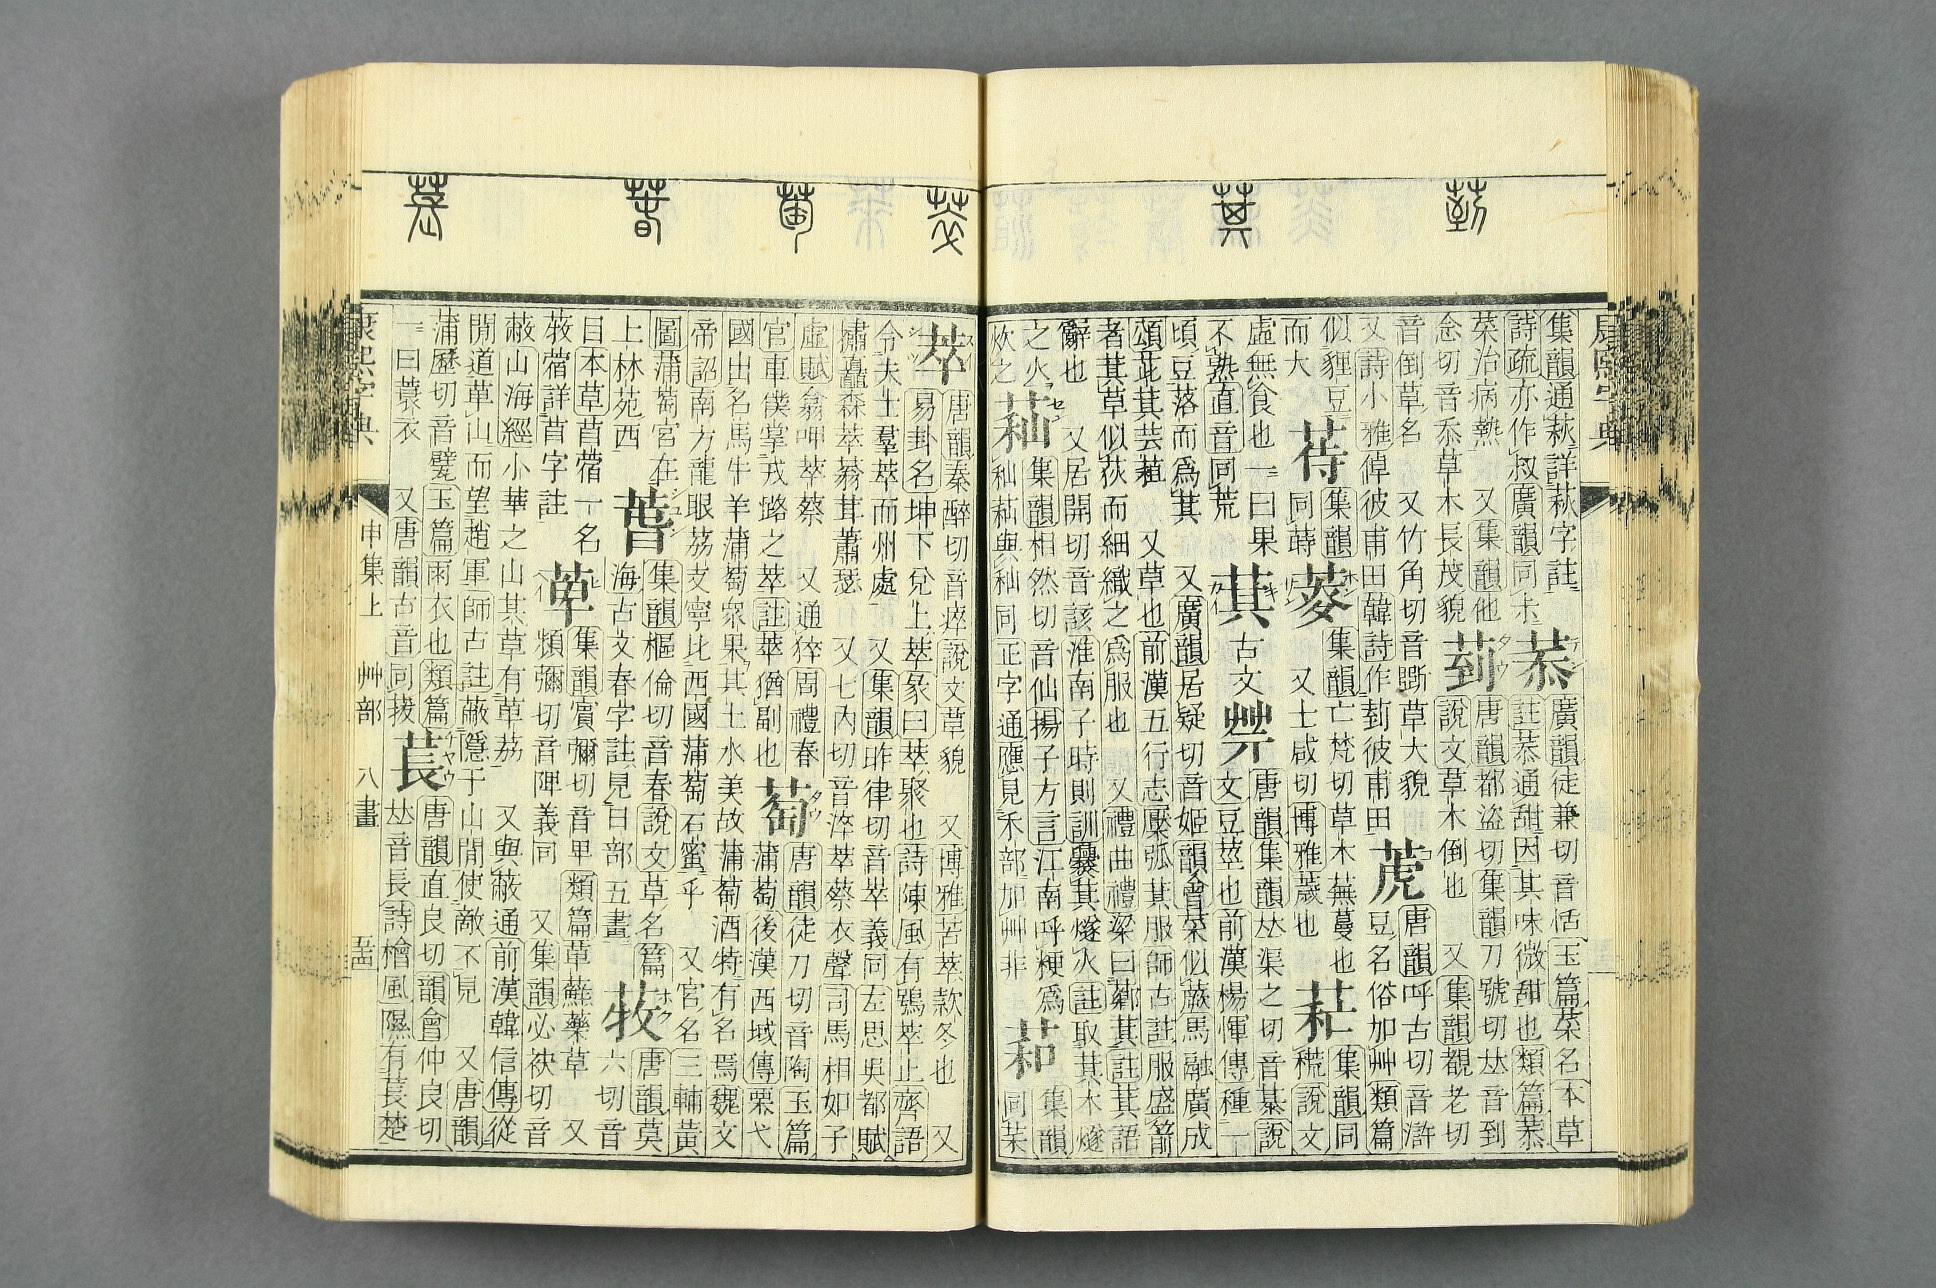 集韻通萩詳萩字註
菾
廣韻徒兼切音恬玉篇菜名本草
詩疏亦作叔廣韻同尗
註菾通甜因其味微甜也類篇菾
菜治病熱
又集韻他
念切音忝草木長茂貌
菿
唐韻都盜切集韻刀號切𠀤音到
說文草木倒也
又集韻覩老切
音倒草名
又竹角切音斲草大貌
又詩小雅倬彼甫田韓詩作菿彼甫田
萀
唐韻呼古切音滸
豆名俗加艸類篇
似貍豆
而大
荶
集韻
同蒔
菱
集韻亡梵切草木蕪蔓也
又士咸切博雅薉也
集韻同
稯說文
虛無食也一曰果
不熟直音同荒
萁
古文
唐韻集韻𠀤渠之切音棊說
文豆莖也前漢楊惲傳種一
頃豆落而爲萁
又廣韻居疑切音姬韻會菜似蕨馬融廣成
頌茈萁芸蒩
又草也前漢五行志檿弧萁服師古註服盛箭
者萁草似荻而細織之爲服也
又禮曲禮梁曰薌萁註萁語
辭也
又居開切音該淮南子時則訓爨萁燧火註取萁木燧
之火
炊之
集韻相然切音仙揚子方言江南呼粳爲
秈
與秈同正字通應見禾部加艸非
集韻
同菜
萃
唐韻秦醉切音瘁說文草貌
又博雅苦萃款冬也
又
易卦名坤下兌上萃彖曰萃聚也詩陳風有鴞萃止齊語
令夫士羣萃而州處
又集韻昨律切音崒義同左思吳都賦
橚矗森萃蓊茸蕭瑟
又七內切音淬萃蔡衣聲司馬相如子
虛賦翕呷萃蔡
又通倅周禮春
官車僕掌戎路之萃註萃猶副也
萄
唐韻徒刀切音陶玉篇
蒲萄後漢西域傳栗弋
國出名馬牛羊蒲萄衆果其土水美故蒲萄酒特有名焉魏文
帝詔南方龍眼荔支寧比西國蒲萄石蜜乎
又官名三輔黃
圖蒲萄宮在
上林苑西
萅
集韻樞倫切音春說文草名篇
海古文春字註見日部五畫
莯
唐韻莫
六切音
目本草苜蓿一名
莯蓿詳苜字註
萆
集韻賓彌切音卑類篇草蘇藥草
又
頻彌切音陴義同
又集韻必袂切音
蔽山海經小華之山其草有萆荔
又與蔽通前漢韓信傳從
閒道萆山而望趙軍師古註蔽隱于山閒使敵不見
又唐韻
蒲歷切音甓玉篇雨衣也類篇
一曰蓑衣
又唐韻古音同拔
萇
唐韻直良切韻會仲良切
𠀤音長詩檜風隰有萇楚
康熙字典
申集上
艸部
八畫